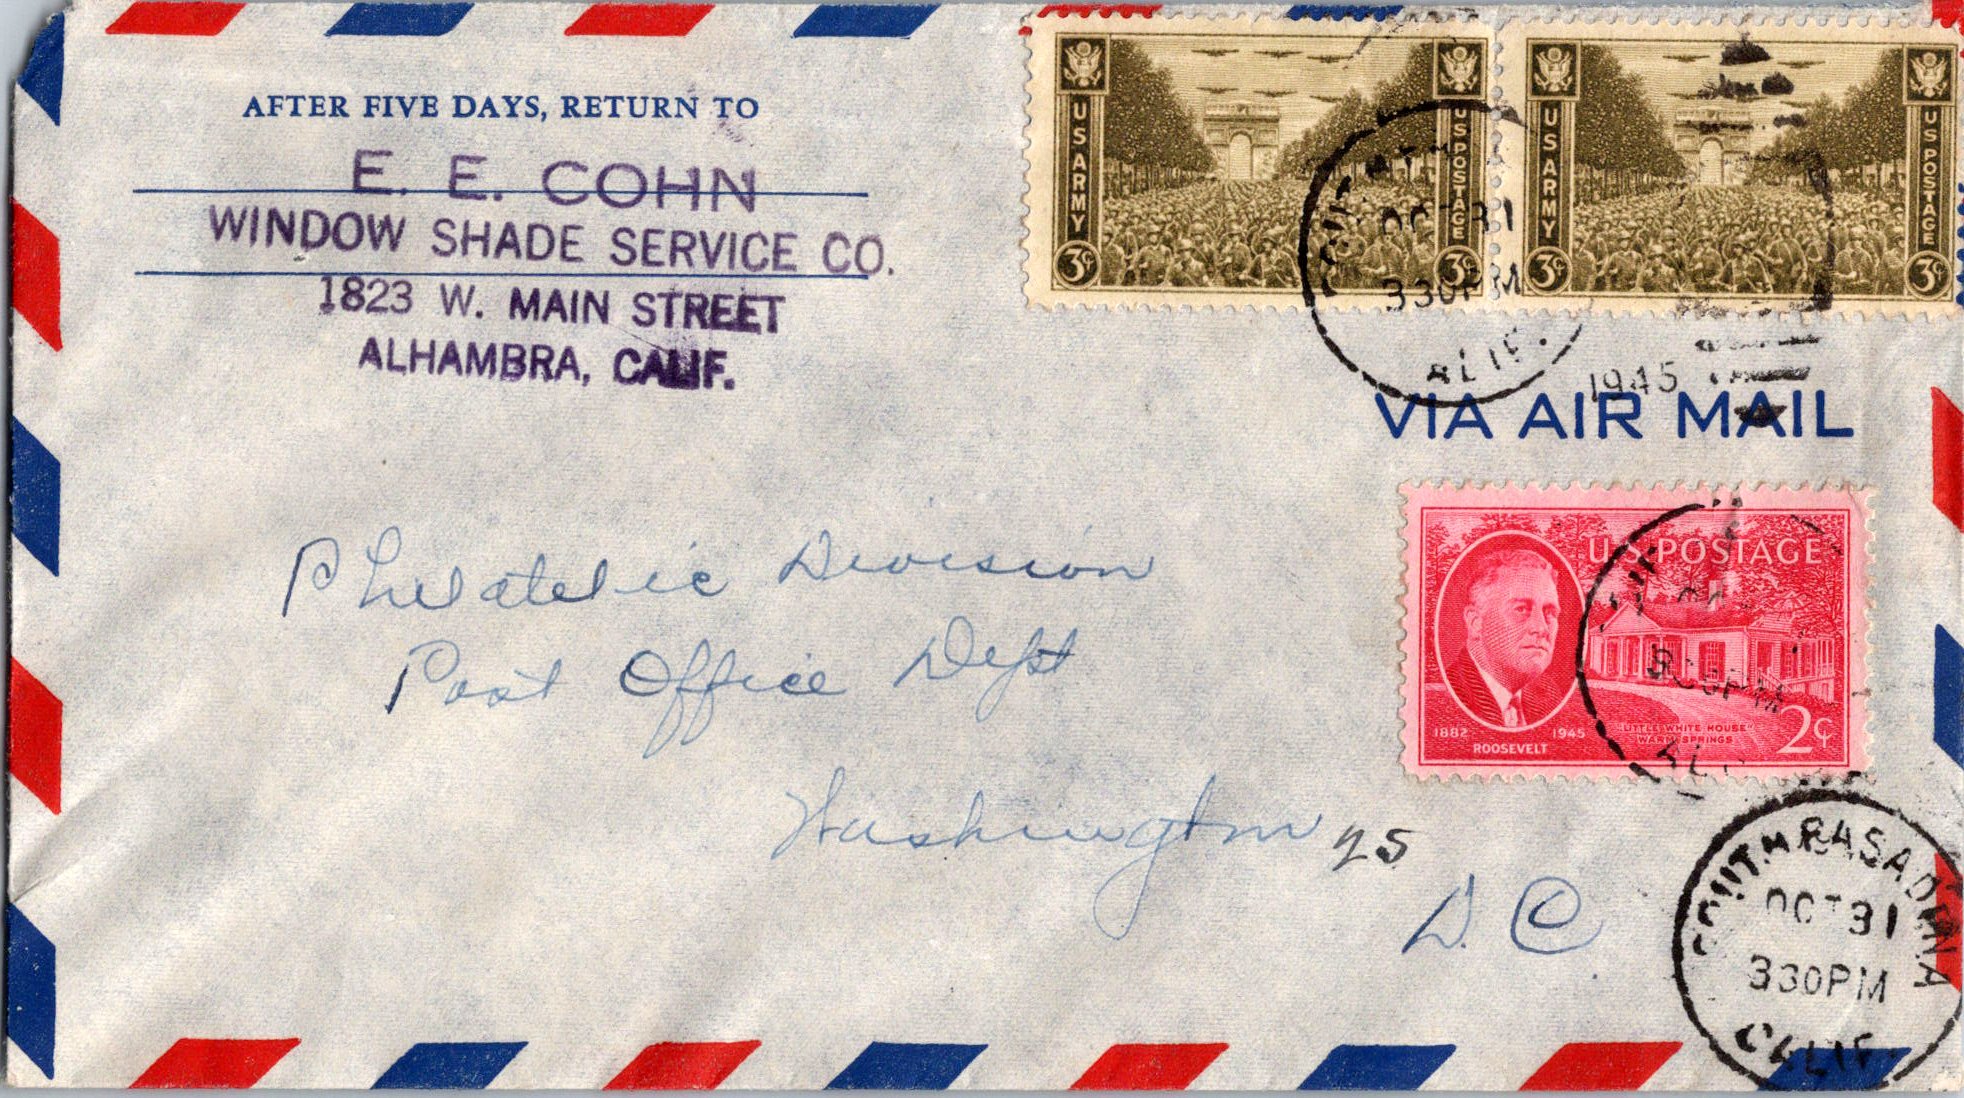 AFTER FIVE DAYS, RETURN TO
E. E. COHN
WINDOW SHADE SERVICE CO.
1823 W. MAIN STREET
ALHAMBRA, CALIF.
U S ARMY
U S POSTAGE
3¢
3¢
U S ARMY
U S POSTAGE
3¢
3¢
OCT 31
330PM
ALIF.
1945
VIA AIR MAIL
U.S. POSTAGE
1882
1945
ROOSEVELT
"LITTLE WHITE HOUSE"
WARM SPRINGS
2¢
Philatelic Division
Post Office Dept
Washington 25
D. C.
SOUTH PASADENA
OCT 31
330PM
CALIF.